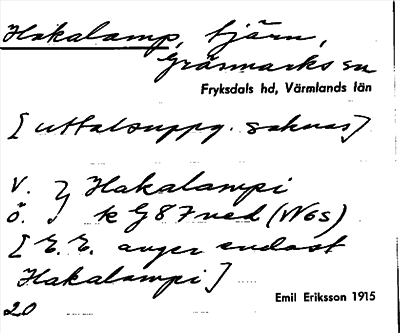 Hakalamp, tjärn,
Gräsmarks sn
Fryksdals hd, Värmlands län
[uttalsuppg. saknas]
V. } Hakalampi
Ö. } k G 87 ned (N6s)
[E. E. anger endast
Hakalampi]
Emil Eriksson 1915
20